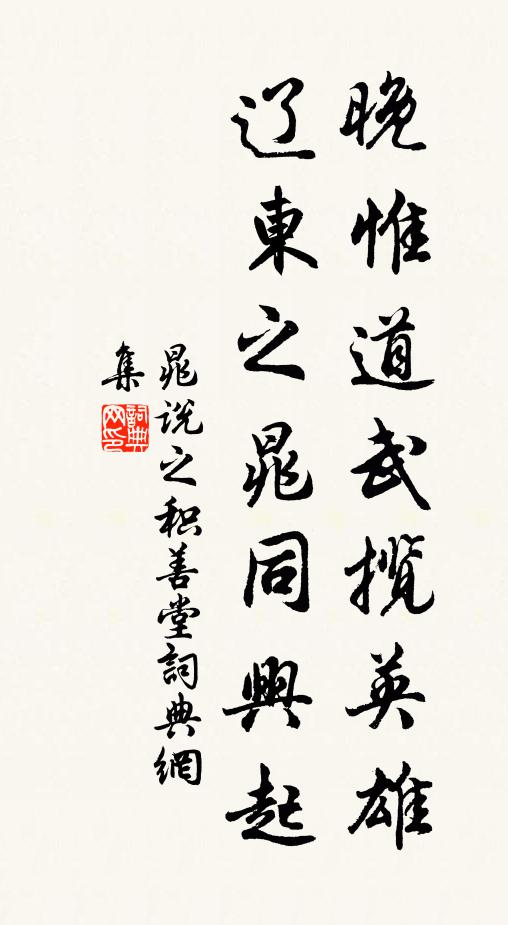 晚惟道武揽英雄
辽東之晁同興起
晁说之积善堂詞典網
集
詞典网印